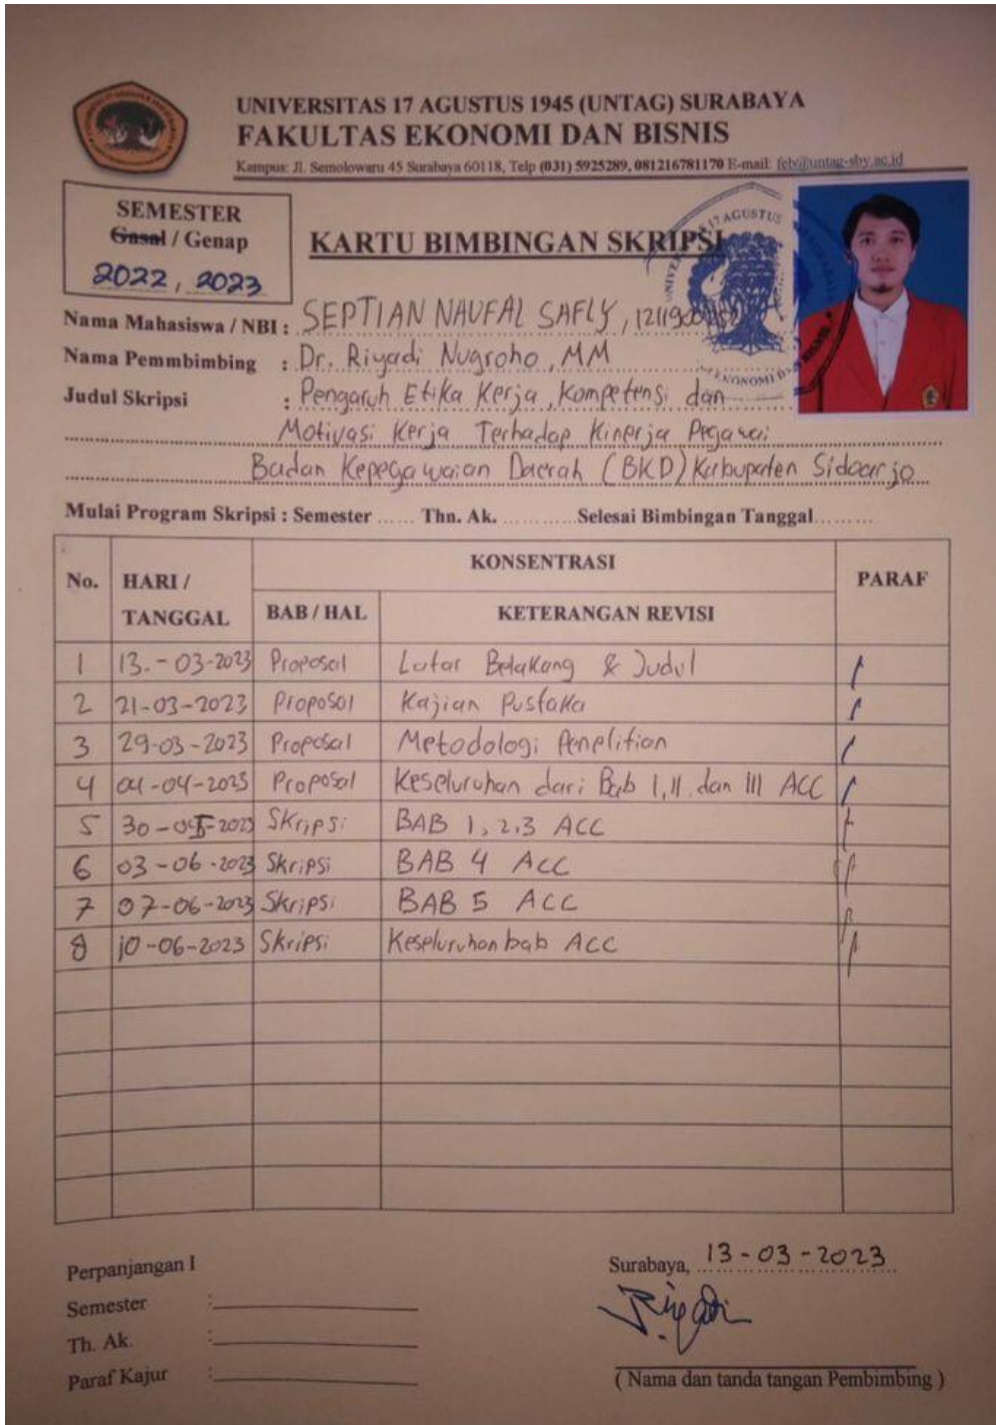 UNIVERSITAS 17 AGUSTUS 1945 (UNTAG) SURABAYA
FAKULTAS EKONOMI DAN BISNIS
Kampus: Jl. Semolowaru 45 Surabaya 60118, Telp (031) 5925289, 081216781170 E-mail: feb@untag-sby.ac.id
SEMESTER
Gasal / Genap
2022, 2023
KARTU BIMBINGAN SKRIPSI
Nama Mahasiswa / NBI : SEPTIAN NAUFAL SAFLY,
Nama Pemmbimbing : Dr. Riyadi Nugroho, MM
Judul Skripsi : Pengaruh Etika Kerja, Kompetensi dan
Motivasi Kerja Terhadap Kinerja Pegawai
Badan Kepegawaian Daerah (BKD) Kabupaten Sidoarjo
Mulai Program Skripsi : Semester ...... Thn. Ak. ............Selesai Bimbingan Tanggal.........
No. HARI / TANGGAL KONSENTRASI PARAF
BAB / HAL KETERANGAN REVISI
1 13.-03-2023 Proposal Latar Belakang & Judul
2 21-03-2023 Proposal Kajian Pustaka
3 29-03-2023 Proposal Metodologi Penelitian
4 04-04-2023 Proposal Keseluruhan dari Bab I, II dan III ACC
5 30-05-2023 Skripsi BAB 1, 2, 3 ACC
6 03-06-2023 Skripsi BAB 4 ACC
7 07-06-2023 Skripsi BAB 5 ACC
8 10-06-2023 Skripsi Keseluruhan bab ACC
Perpanjangan I
Semester :
Th. Ak. :
Paraf Kajur :
Surabaya, 13-03-2023
Riyadi
( Nama dan tanda tangan Pembimbing )